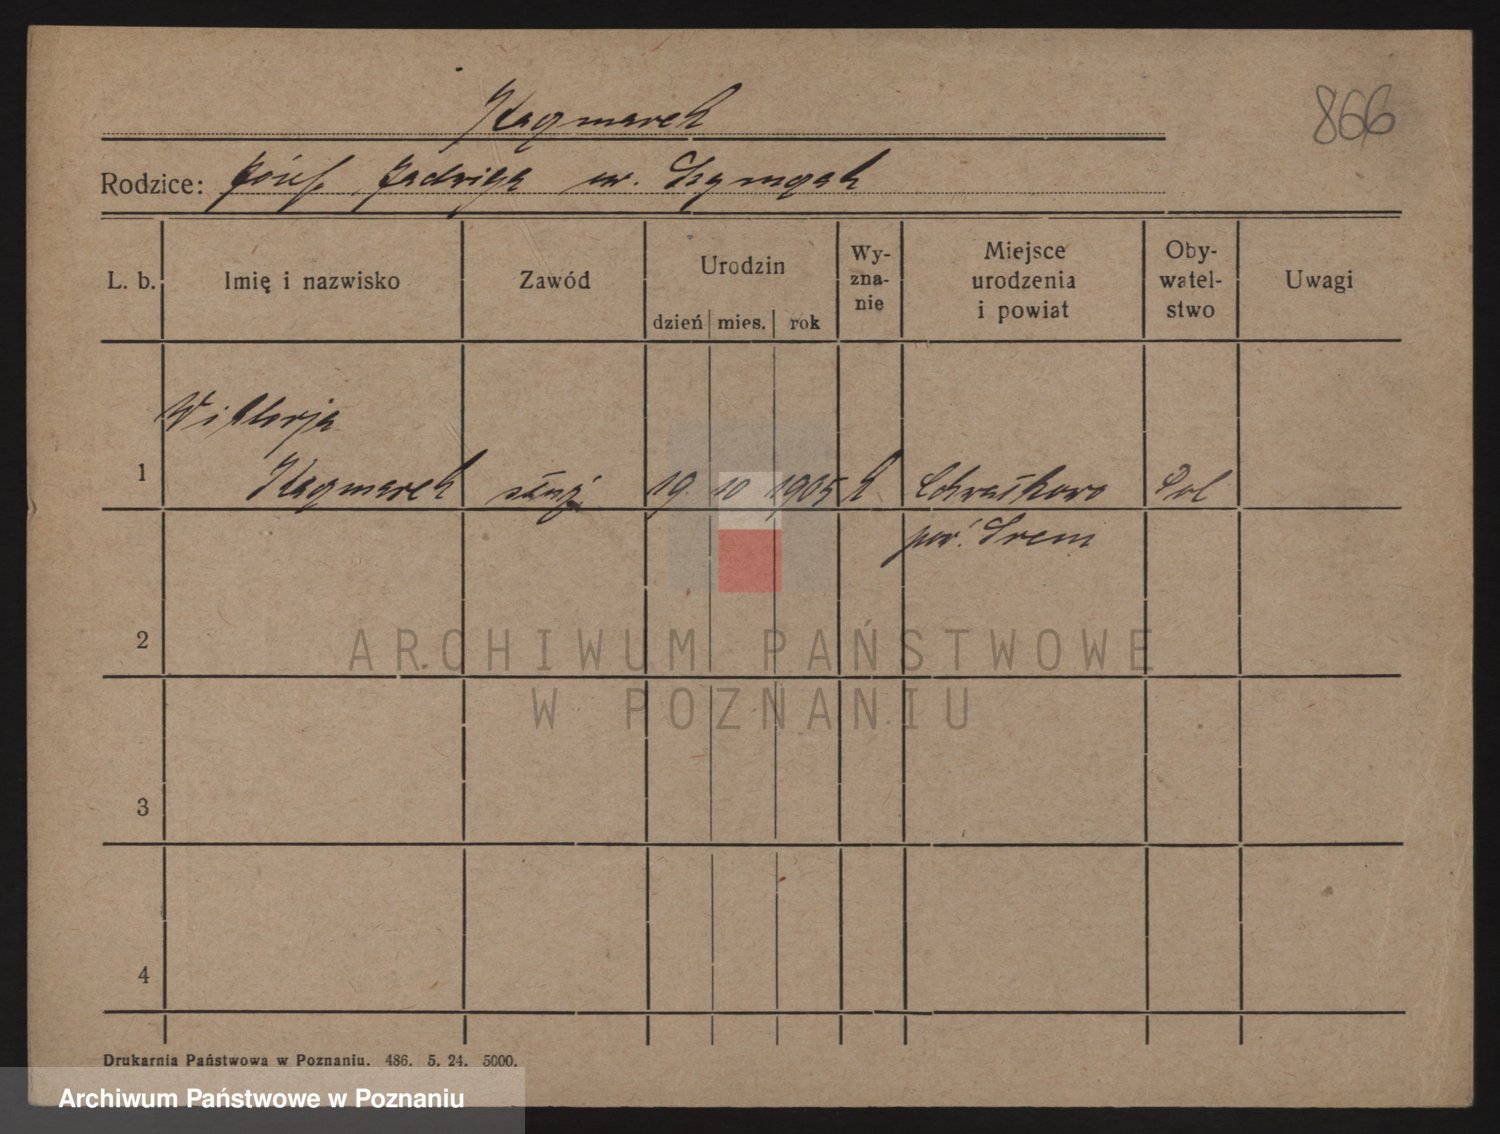 Kaczmarek
866
Rodzice: Józef, Jadwiga ur. Szymczak
L. b.
Imię i nazwisko
Zawód
Urodzin
dzień mies. rok
Wy-
zna-
nie
Miejsce
urodzenia
i powiat
Oby-
watel-
stwo
Uwagi
Wiktorja
1 Kaczmarek służ. 19 10 1905 k Pol
pow. Śrem
2
3
4
Drukarnia Państwowa w Poznaniu. 486. 5. 24. 5000.
ARCHIWUM PAŃSTWOWE
W POZNANIU
Archiwum Państwowe w Poznaniu